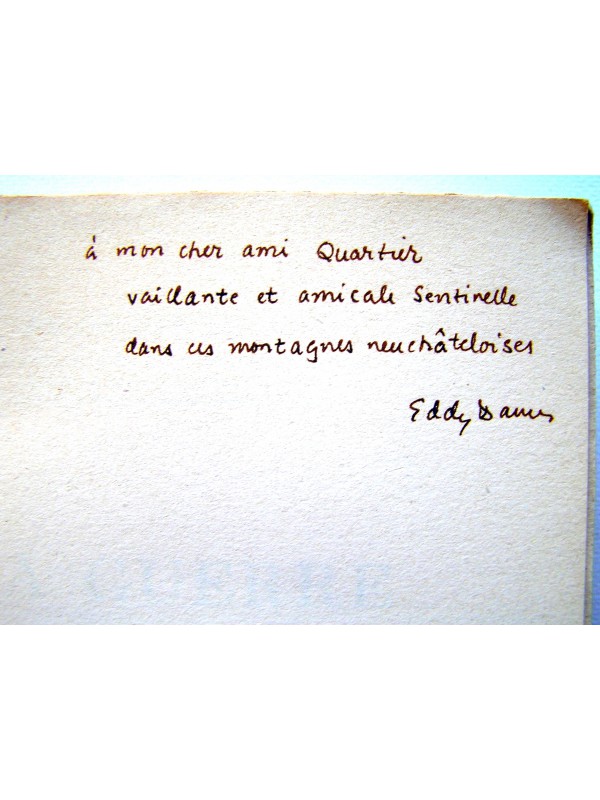 à mon cher ami Quartier
vaillante et amicale Sentinelle
dans ces montagnes neuchâteloises
Eddy